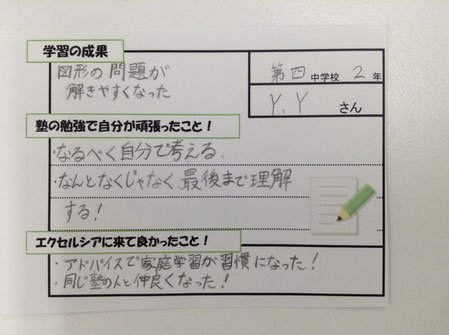 学習の成果
図形の問題が
解きやすくなった
第四中学校 2年
Y.Y さん
塾の勉強で自分が頑張ったこと!
・なるべく自分で考える。
・なんとなくじゃなく、最後まで理解
する!
エクセルシアに来て良かったこと!
・アドバイスで家庭学習が習慣になった!
・同じ塾の人と仲良くなった!